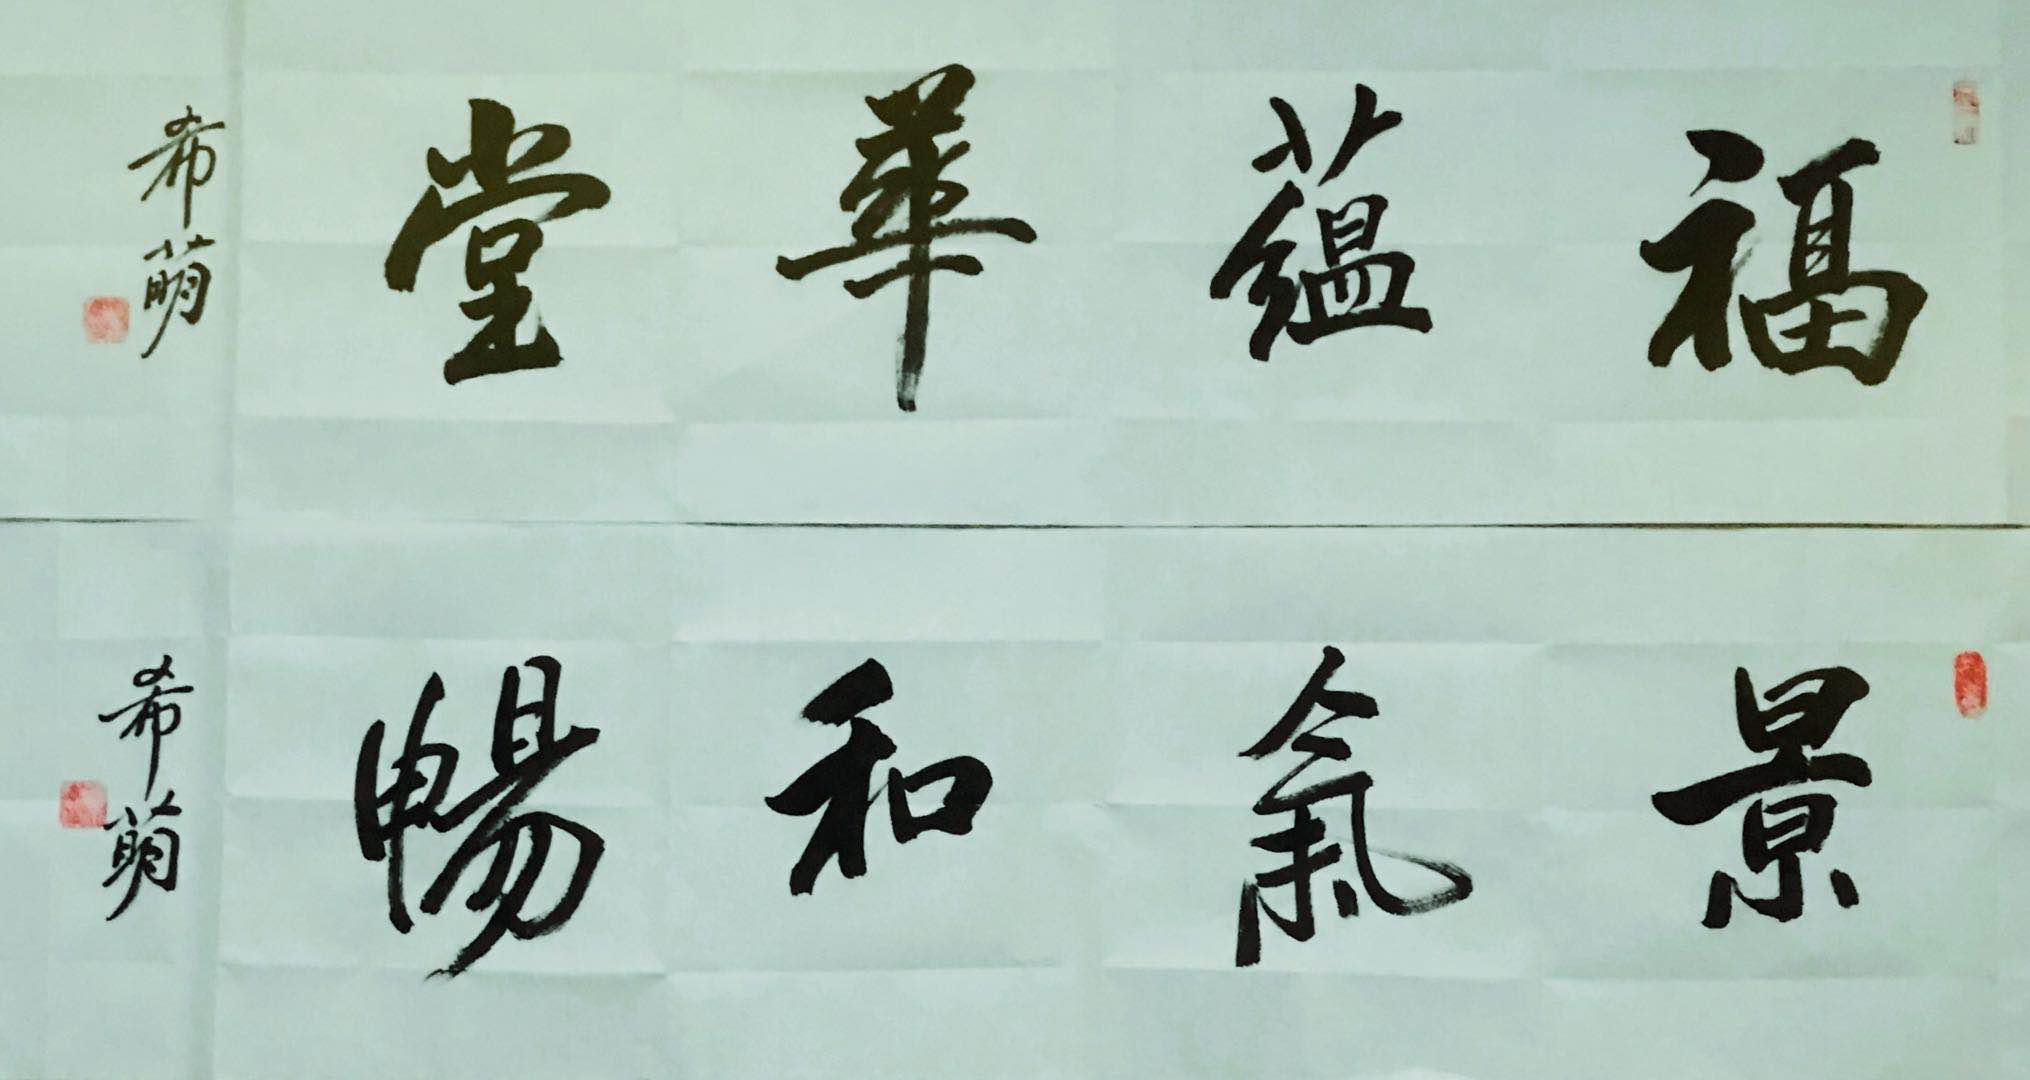 福蘊華堂
希萌
景氣和暢
希萌